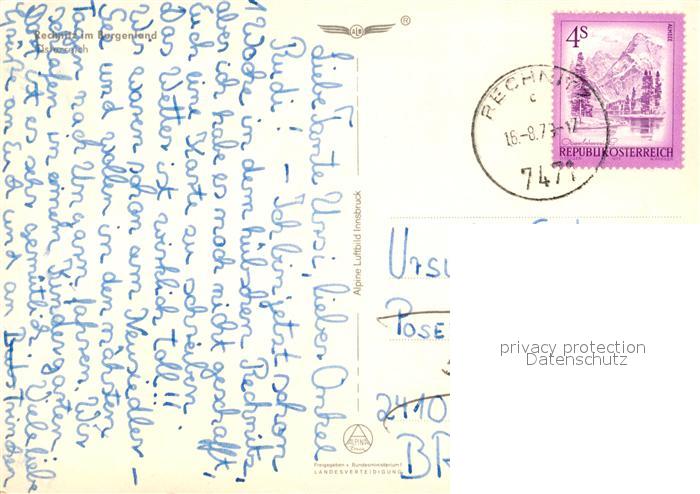 Rechnitz im Burgenland
Österreich
ALB
®
4S
ALMSEE
REPUBLIK ÖSTERREICH
RECHNITZ
c
16.-8.79-17
7471
Liebe Tante Ursi, lieber Onkel
Rudi! - Ich bin jetzt schon
1 Woche in dem hübschen Rechnitz,
aber ich habe es noch nicht geschafft,
Euch eine Karte zu schreiben.
Das Wetter ist wirklich toll!!!
Wir waren schon am Neusiedler-
See und wollen in den nächsten
Tagen nach Ungarn fahren. Wir
schlafen in einem Kindergarten.
Dort ist es sehr gemütlich. Viele liebe
Grüße an Euch und an
Alpine Luftbild Innsbruck
ALPINE
Freigegeben v. Bundesministerium f.
LANDESVERTEIDIGUNG
Ursu
Pose
2410
BR
privacy protection
Datenschutz